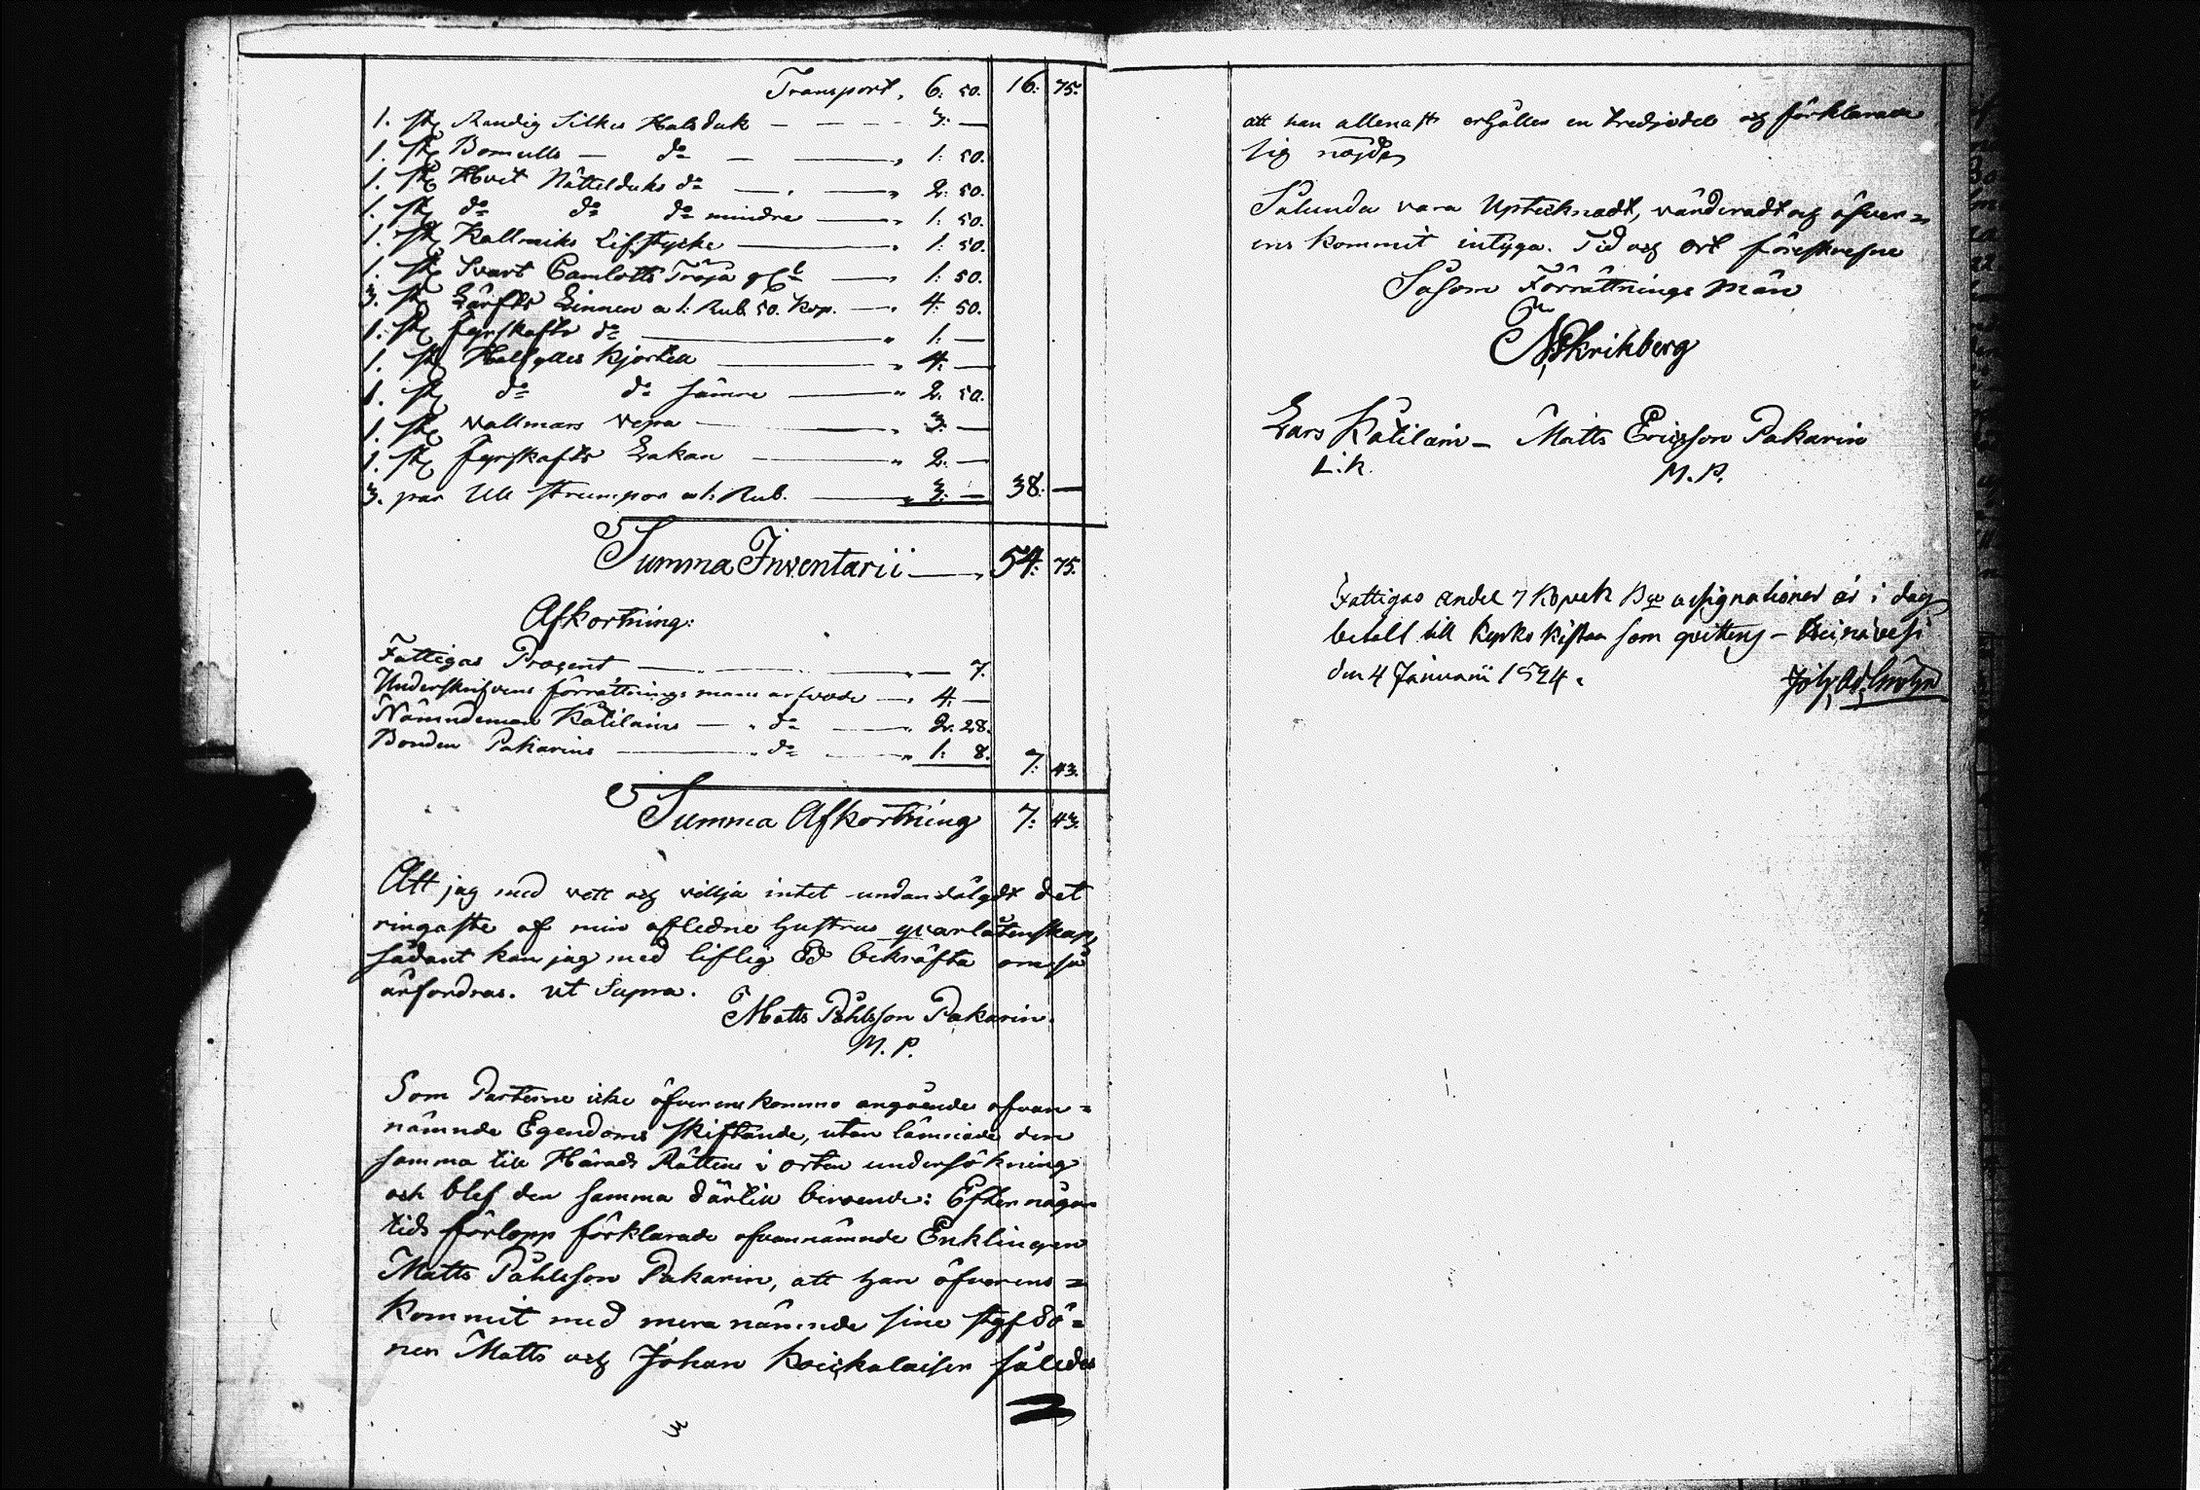 Transport, 6. 50. 16. 75.
1. st. Randig Silkes Halsduk — 3. —
1. st. Bomulls — do — 1. 50.
1. st. Hvit Nättelduks do — 2. 50.
1. st. do do do mindre — 1. 50.
1. st. Kallmiks Lifstycke — 1. 50.
1. st. Svart Camlotts Tröja — 1. 50.
3. st. Lärfts Linnen a 1. Rub. 50. Kop. — 4. 50.
1. st. fyrskafts do — 1. —
1. st. Halfylles Kjortel — 4. —
1. st. do do sämre — 2. 50.
1. st. vallmars vepa — 3. —
1. st. fyrskafts Lakan — 2. —
3. par Ull strumpor a 1. Rub. — 3. — 38. —
Summa Inventarii — 54. 75.
Afkortning:
Fattigas Procent — 7.
Underskrifvens förrättnings mans arfvode — 4. —
Nämndeman Kätilains — do — 2. 28.
Bonden Pakarins — do — 1. 8. 7. 43.
Summa Afkortning 7. 43.
Att jag med vett och villja intet undandålgdt det
ringaste af min afledne hustrus qvarlåtenskap,
sådant kan jag med liflig Ed bekräfta om så
ärfordras. ut Supra.
Matts Påhlsson Pakarin.
M. P.
Som Parterne icke öfverenskommo angående ofvan=
nämnde Egendoms skiftande, utan lämnade den
samma till Härads Rättens i orten undersökning
och blef den samma därtill beroende: Efter någon
tids förlopp förklarade ofvannämnde Enklingen
Matts Påhlsson Pakarin, att han öfverens=
kommit med mera nämnde sine styf Sö=
ner Matts och Johan Koickalaisen således
att han allenast erhåller en tredjedel och förklarade
sig nöjde,
Sålunda vara Uptecknadt, värderadt och öfver=
ens kommit intyga. Tid och ort föreskrefne
Såsom Förrättnings Män
Skrikberg
Lars Kätilain — Matts Ericsson Pakarin
L. K. M. P.
Fattigas andel 7 Kopek Bco assignationer är i dag
betalt till kyrko kistan som qvitteras — Heinävesi
den 4 Januarii 1824.
Joh. Ad.